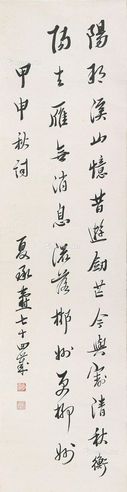 陽朔溪山憶昔遊劍芒今與割清秋衡
陽去雁無消息流落郴州更柳州
甲申秋詞
夏承燾七十四歲